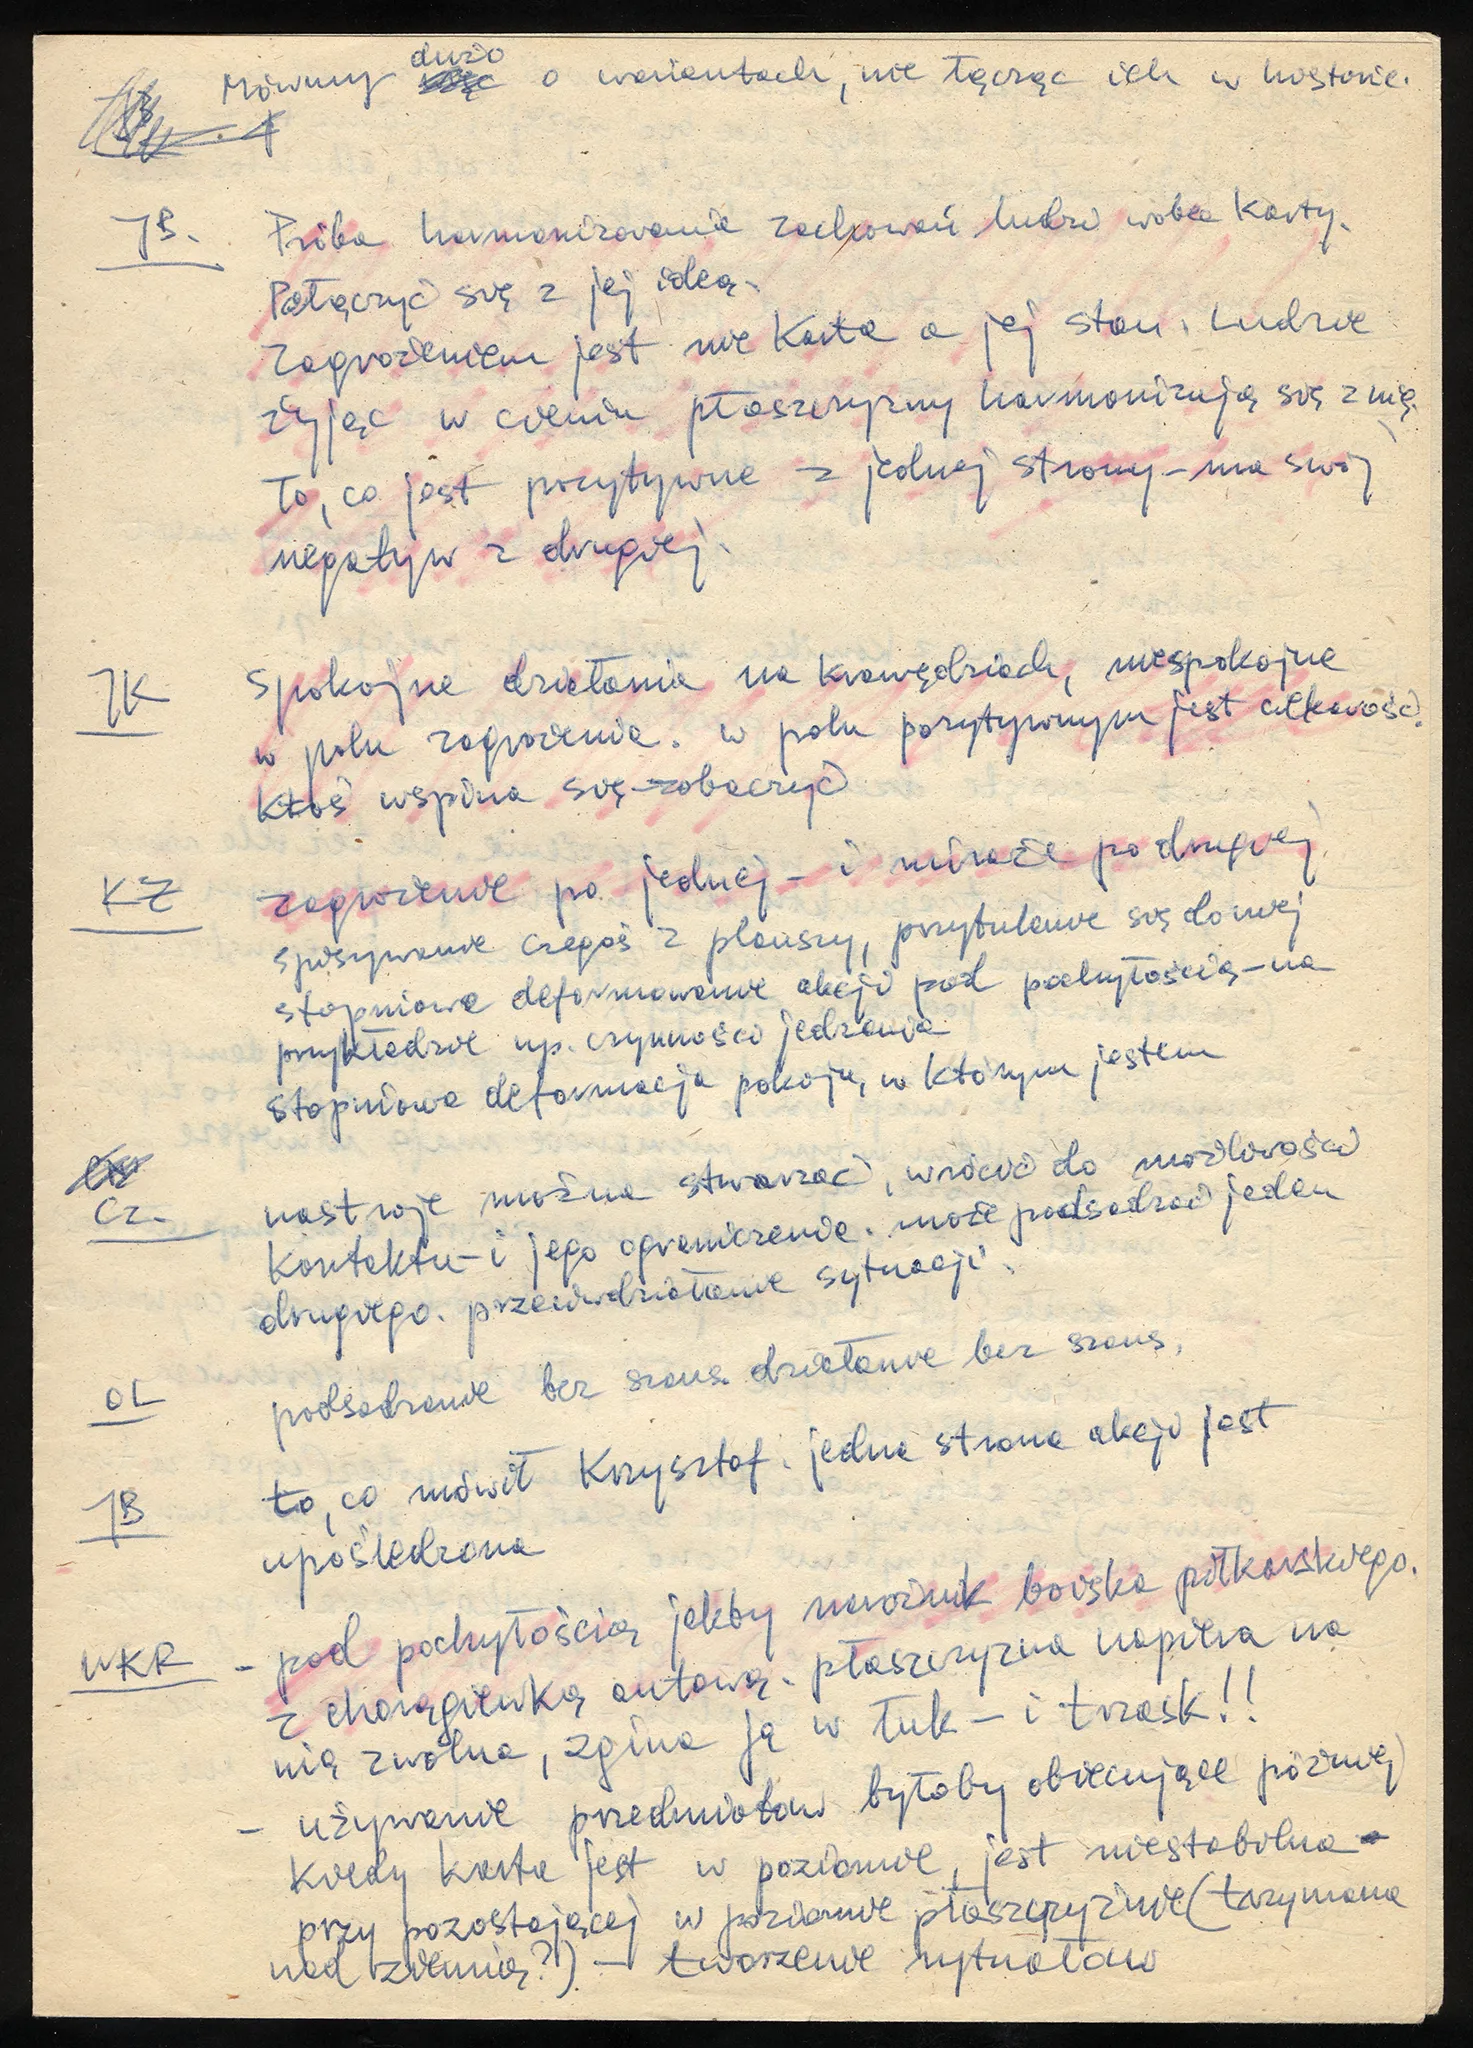 dużo
Mówmy o wariantach, nie łącząc ich w historie.
JB. Próba harmonizowania zachowań ludzi wobec Karty.
Połączyć się z jej ideą.
Zagrożeniem jest nie Karta a jej stan. Ludzie
żyjąc w cieniu płaszczyzny harmonizują się z nią.
To, co jest pozytywne z jednej strony – ma swój
negatyw z drugiej.
JK Spokojne działania na krawędziach, niespokojne
w polu zagrożenia. w polu pozytywnym jest ciekawość.
ktoś wspina się – zobaczyć
KZ zagrożenie po jednej – i miraże po drugiej
spisywanie czegoś z planszy, przytulenie się do niej
stopniowe deformowanie akcji pod pochyłością – na
przykładzie np. czynności jedzenia
stopniowa deformacja pokoju, w którym jestem
Cz. nastroje można stwarzać, wrócić do możliwości
kontaktu – i jego ograniczenia. może podsadzać jeden
drugiego. przeciwdziałanie sytuacji.
OL podsadzanie bez szans. działanie bez szans.
JB to, co mówił Krzysztof. jedna strona akcji jest
upośledzona
WKR – pod pochyłością jakby narożnik boiska piłkarskiego.
z chorągiewką autową. płaszczyzna napiera na
nią zwolna, zgina ją w łuk – i trzask!!
– używanie przedmiotów byłoby obiecujące później
kiedy karta jest w poziomie, jest niestabilna –
przy pozostającej w poziomie płaszczyźnie (trzymana
nad ziemią?) – tworzenie rytuałów